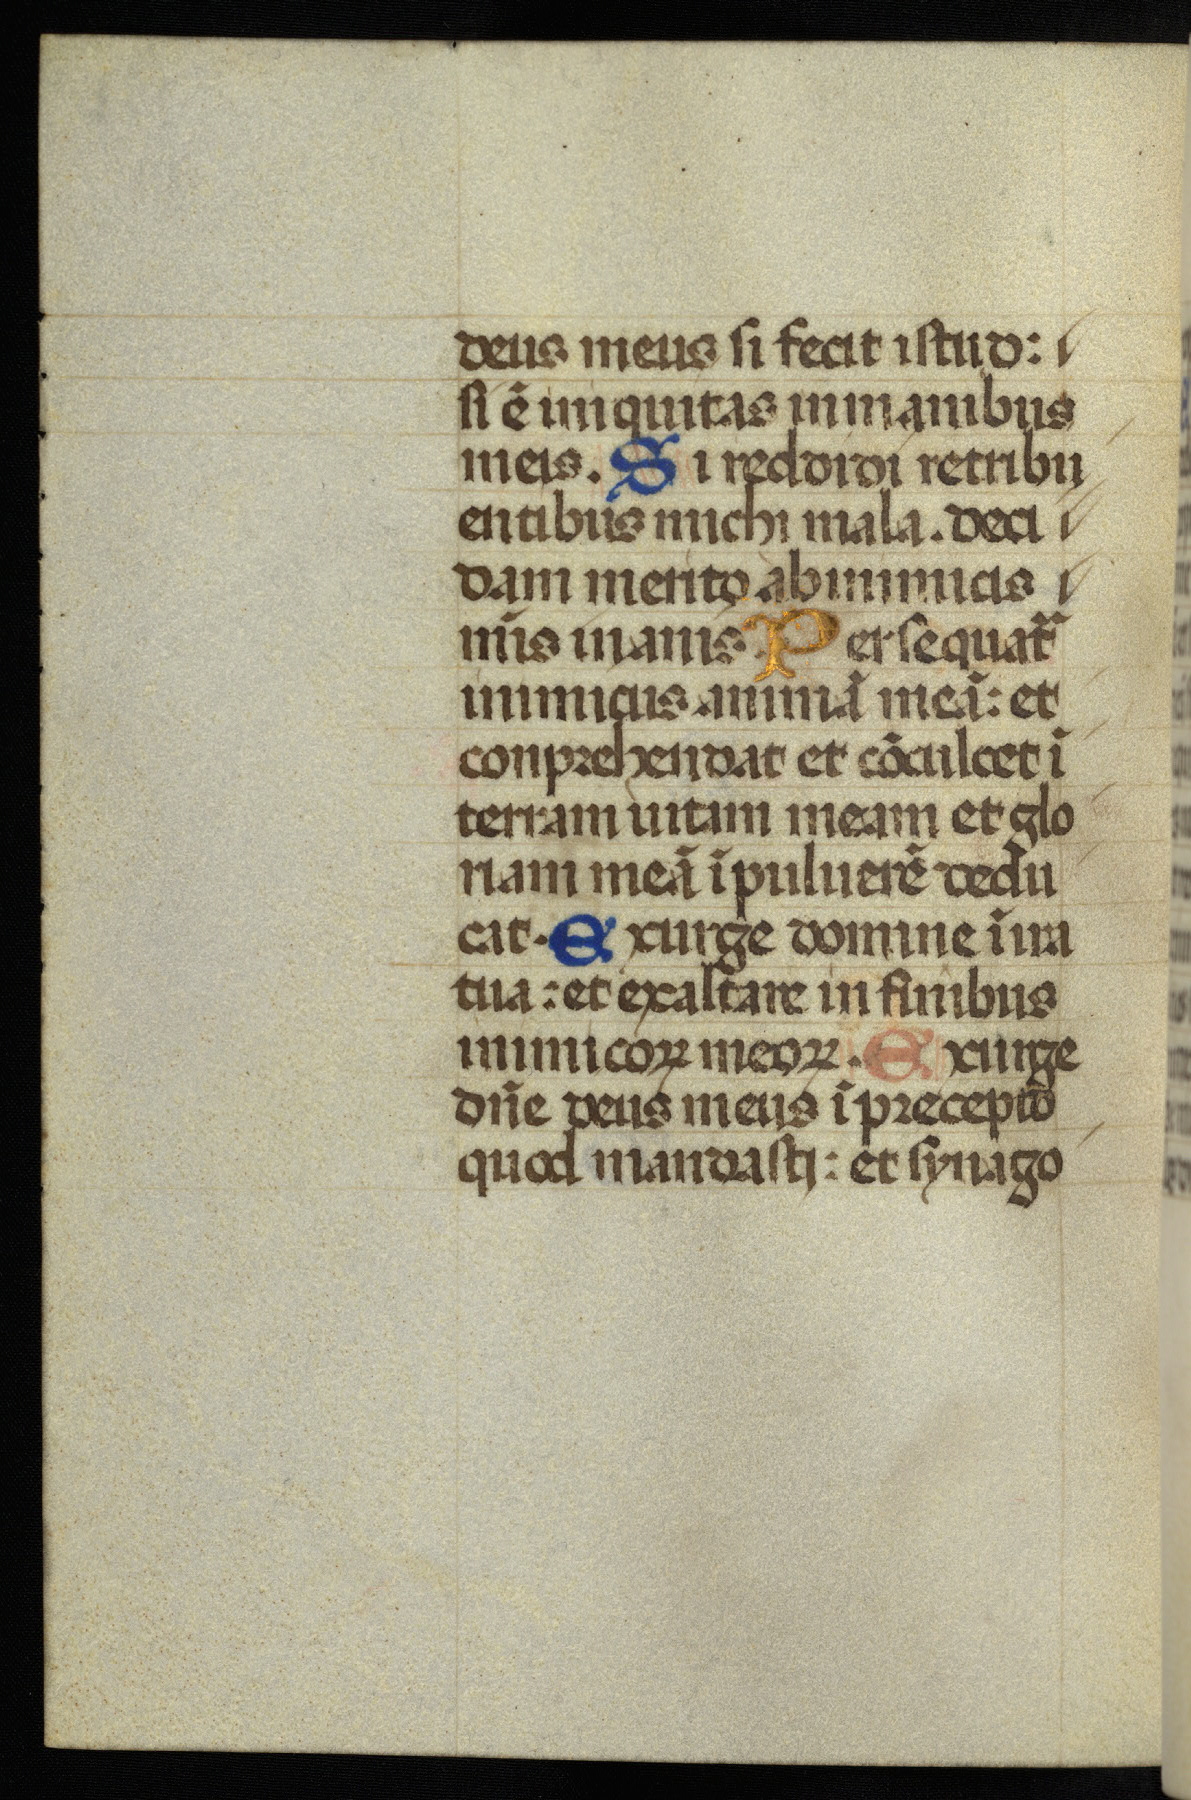 deus meus si fecit istud:
si ē iniquitas in manibus
meis. Si reddidi retribu
entibus michi mala. deci
dam merito ab inimicis
mīis inanis Persequat᷑
inimicus animā meā: et
conprehendat et cōculcet ī
terram uitam meam et glo
riam meā ī puluerē dedu
cat. Exurge domine ī ira
tua: et exaltare in finibus
inimicoꝝ meoꝝ. Exurge
dn̄e deus meus ī precepto
quod mandasti: et synago